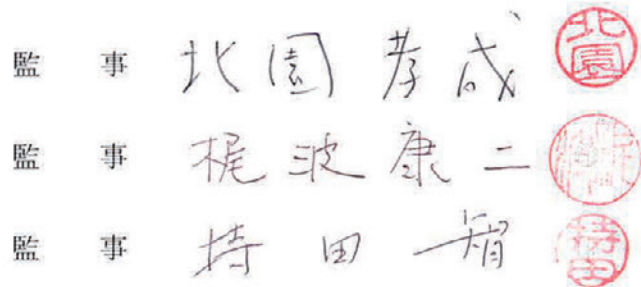 監事 北園孝成 北園
監事 梶波康二
監事 持田智 持田